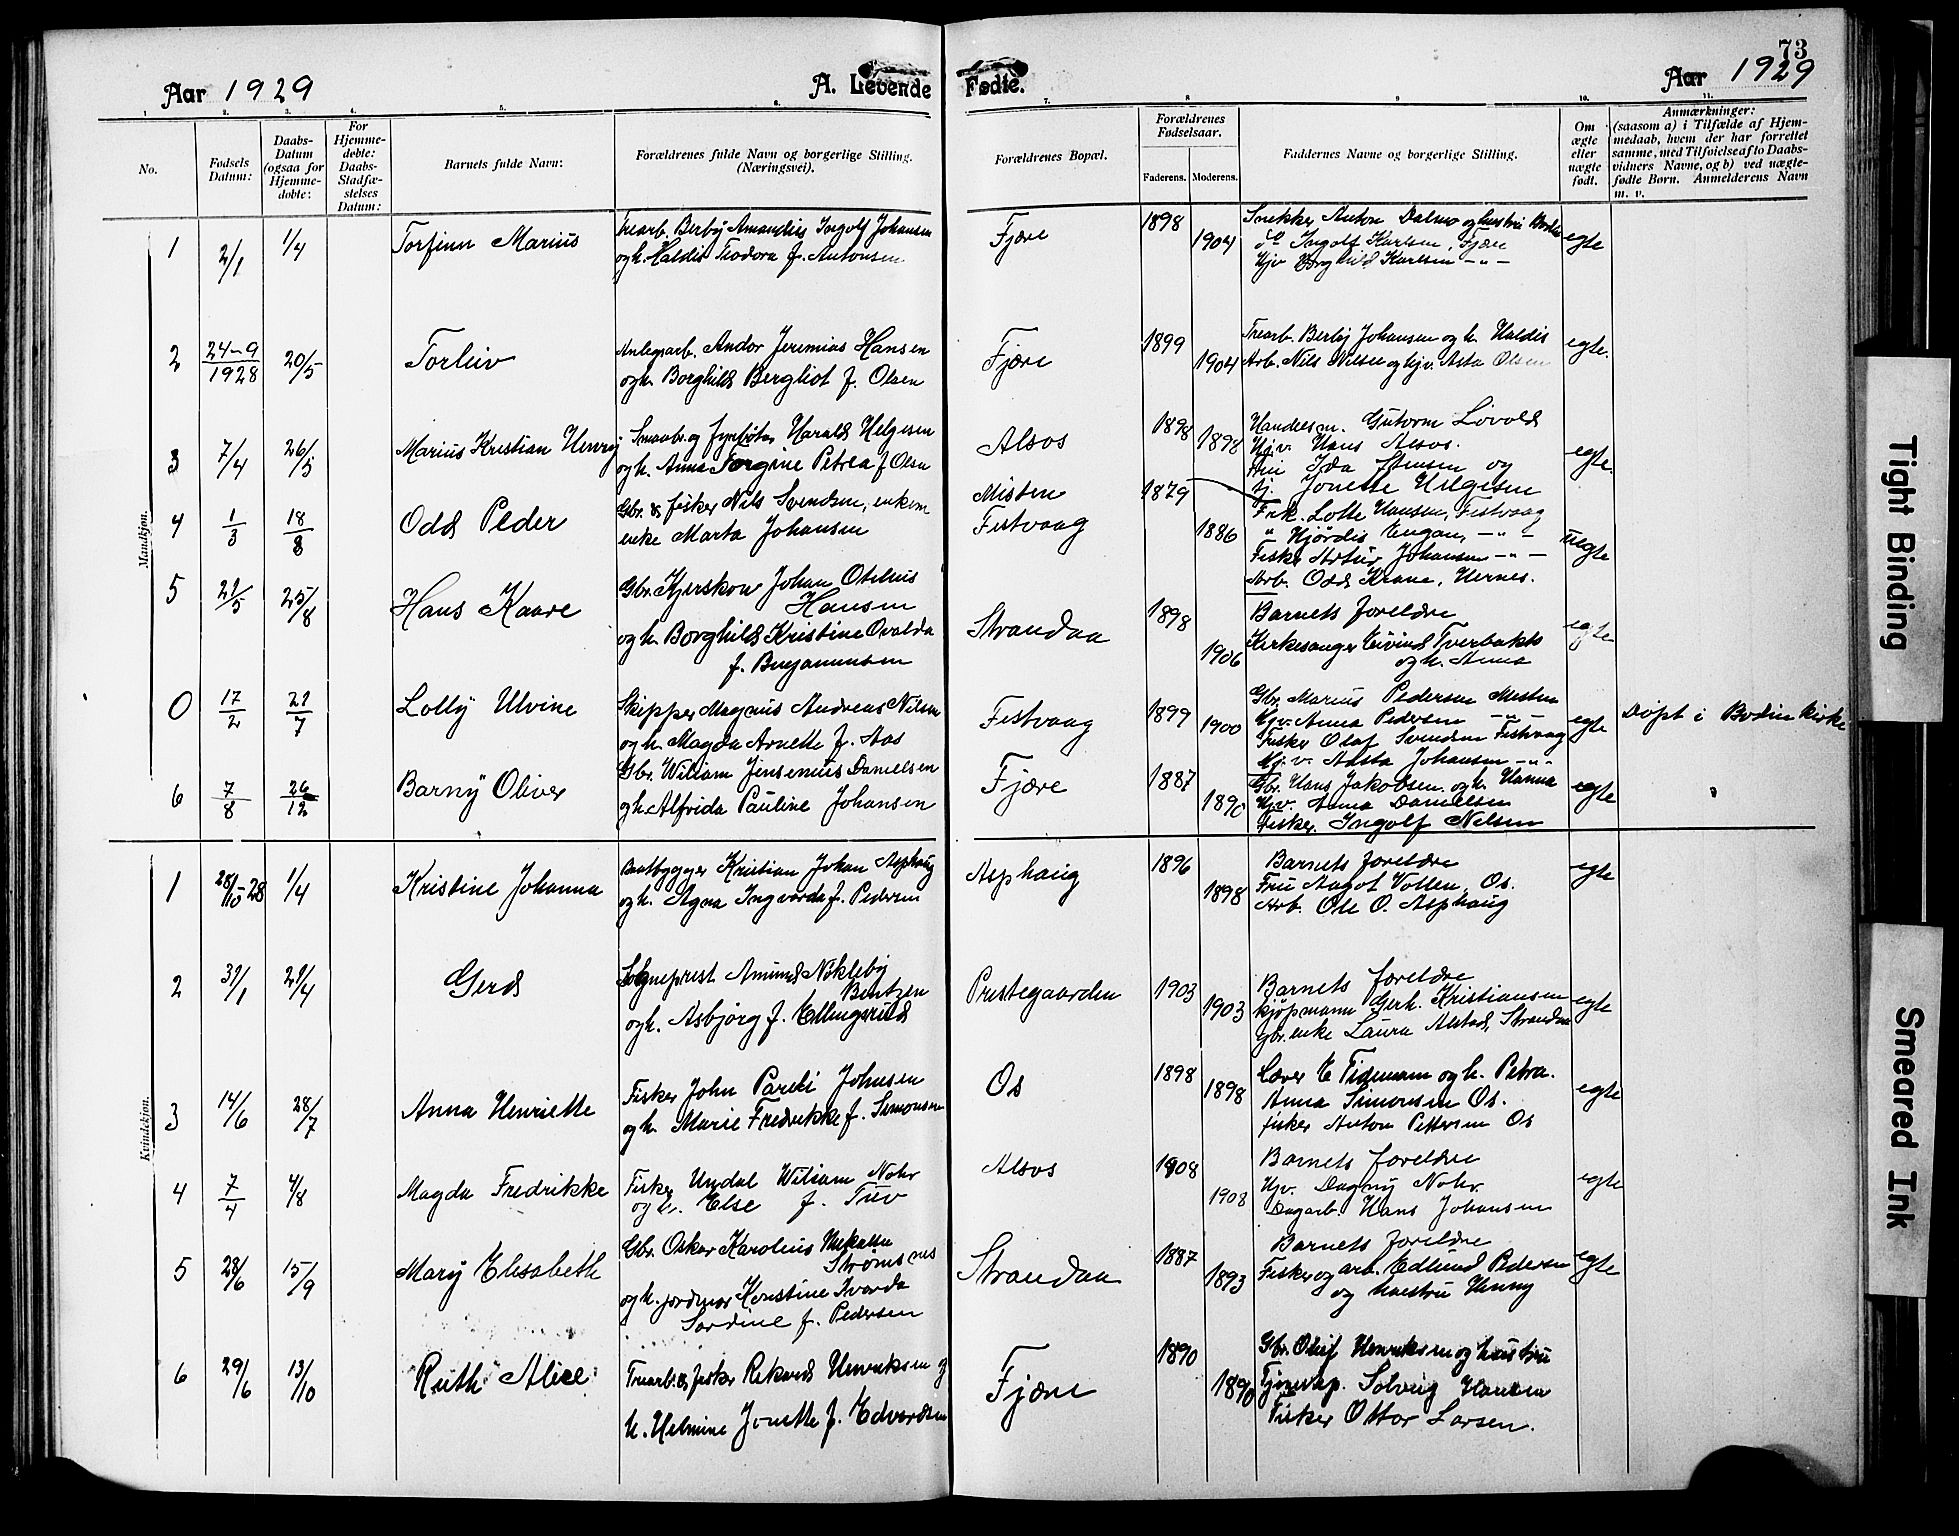 73
Aar 1929
A. Levende Fødte.
Aar 1929
1. 2. 3. 4. 5. 6. 7. 8 9 10. 11.
No.
Fødsels Datum:
Daabs-Datum (ogsaa for Hjemme-døbte:
For Hjemme-døbte: Daabs-Stadfæ-stelses Datum:
Barnets fulde Navn:
Forældrenes fulde Navn og borgerlige Stilling. (Næringsvei).
Forældrenes Bopæl.
Forældrenes Fødselsaar.
Faderens. Moderens.
Faddernes Navne og borgerlige Stilling.
Om ægte eller uægte født.
Anmærkninger: (saasom a) i Tilfælde af Hjem-medaab, hvem der har forrettet samme, med Tilføielse af to Daabs-vidners Navne, og b) ved uægte-fødte Børn. Anmelderens Navn m. v.
Mandkjøn.
1 2/1 1/4 Torfinn Marius
Trearb. Berby Amandius Ingolf Johansen
og h. Haldis Teodora f. Antonsen
Fjære 1898 1904
Snekker Anton Dalmo og hustru Bodin
Ingolf Karlsen, Fjære
Hjv Borghild Karlsen -"-
egte
2 24-9/1928 20/5 Torleiv
Anlegsarb. Andor Jeremias Hansen
og h. Borghild Bergliot f. Olsen
Fjære 1899 1904
Trearb. Berby Johansen og h. Haldis
Arb. Nils Nilsen og hjv. Asta Olsen
egte.
3 7/4 26/5 Marius Kristian Henry
Smaabr. og fyrbøter Harald Helgesen
og h. Anna Torgine Petrea f Olsen
Alsos 1898 1898
Handelsm. Gutorm Løvold
Hjv. Hans Alsos.
Fru Ida Jensen og
Jonette Helgesen
egte.
4 1/3 18/8 Odd Peder
Gbr. & fisker Nils Svendsen, enkem
enke Marta Johansen
Misten
Festvaag 1879 1886
Frk. Lotte Hansen, Festvaag
" Hjørdis Engan, -"-
Fisker Artur Johansen -"-
Arb. Odd Krane, Hernes.
uegte
5 21/5 25/8 Hans Kaare
Gbr. Kjerskov Johan Otelius
Hansen
og h. Borghild Kristine Ovalda
f. Benjaminsen
Strandaa 1898 1906
Barnets foreldre
Kirkesanger Eivind Tverbakk
og h. Anna
egte
0 17/2 21/7 Lolly Ulvine
Skipper Magnus Andreas Nilsen
og h. Magda Arnette f. Aas
Festvaag 1899 1900
Gbr. Marius Pedersen Misten
Hjv. Anna Pedersen -"-
Fisker Olaf Svendsen Festvaag
Hj. v. Aasta Johansen -"-
egte
Døpt i Bodin kirke
6 7/8 26/12 Barny Oliver
Gbr. Wiliam Jensenius Danielsen
og h. Alfrida Pauline Johansen
Fjære 1887
Gbr. Hans Jakobsen og h. Hanna
Hjv. Anna Danielsen
Fisker. Ingolf Nelsen
egte
Kvindekjøn.
1 28/10-28 1/4 Kristine Johanna
Baatbygger Kristian Johan Asphaug
og h. Agna Ingvarda f. Pedersen
Asphaug 1896 1898
Barnets foreldre
Fru Aagot Vollen, Os.
Arb. Ole O. Asphaug
egte
2 31/1 21/4 Gerd
Sogneprest Amund Nøkleby
Bentzen
og h. Asbjørg f. Ellingsrud
Prestegaarden 1903 1903
Barnets foreldre
kjøpmann Gerh. Kristiansen
gbr. enke Laura Alstad, Strandaa
egte
3 14/6 28/7 Anna Henriette
Fisker John Pareli Johnsen
og h. Marie Fredrikke f. Simonsen
Os 1898 1898
Lærer E Tidemann og h. Petra.
Anna Simonsen Os.
fisker Anton Pettersen Os
egte
4 7/4 4/8 Magda Fredrikke
Fisker Undal Wiliam Nohr
og h. Else f. Tuv
Alsos 1908 1908
Barnets foreldre
Hjv. Dagny Nohr
Dagarb. Hans Johansen
egte
5 28/6 15/9 Mary Elisabeth
Gbr. Oskar Karolius Mekalsen
Strømsnes
og h. jordmor Konstine Ivarda
Sordine f. Pedersen
Strandaa 1887 1893
Barnets foreldre
Fisker og arb. Edlund Pedersen
og huestru Henny
egte
6 29/6 13/10 Ruth Alice
Trearb. & fisker Rikard Henriksen og
h. Helmine Jonette f. Edvardsen
Fjære 1890 1890
Gbr. Oluf Henriksen og hustru
Solveig Hansen
Fisker Ottar Larsen.
Tight Binding
Smeared Ink